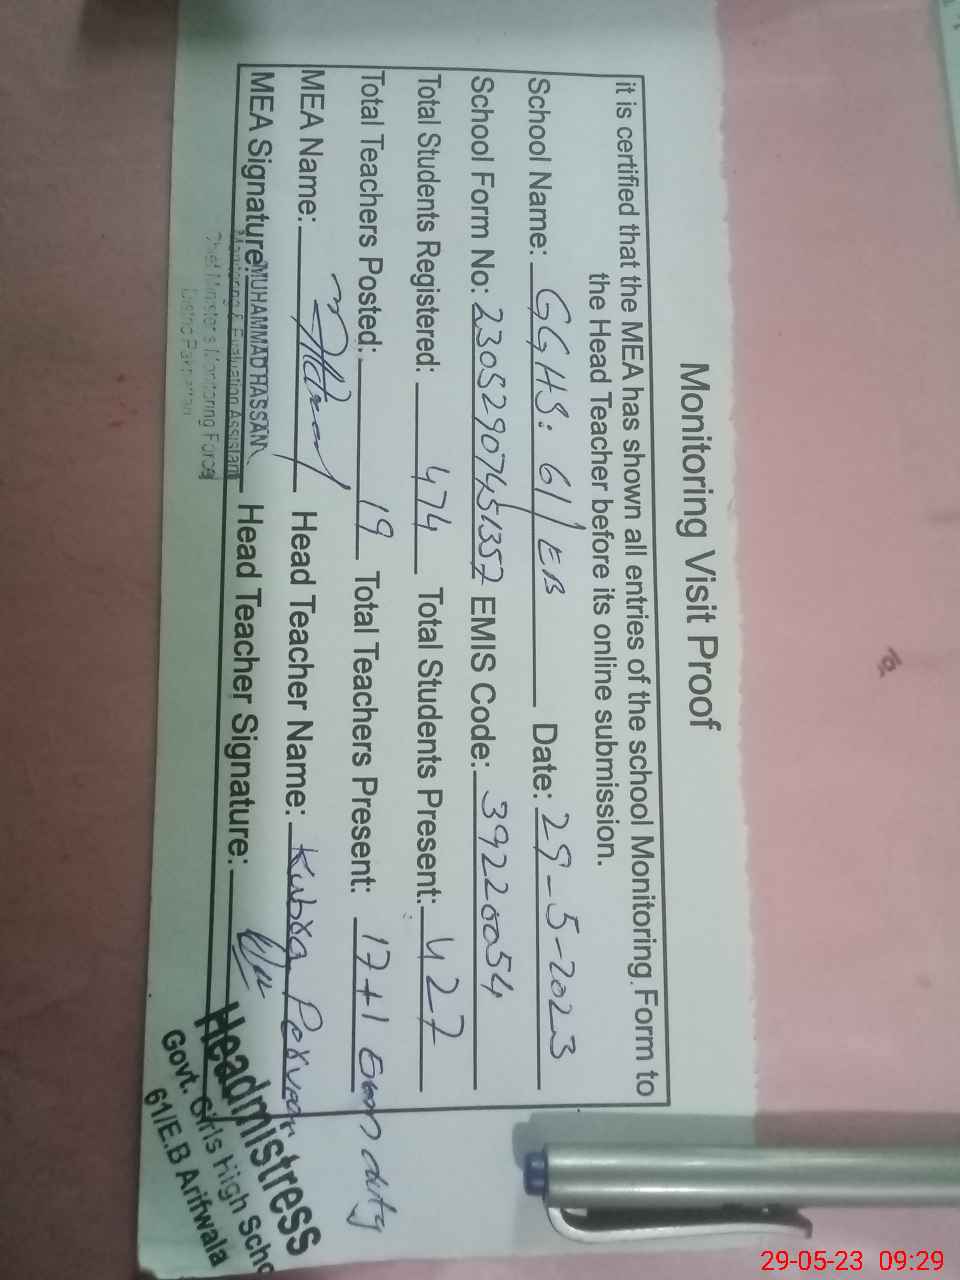 Monitoring Visit Proof
it is certified that the MEA has shown all entries of the school Monitoring Form to
the Head Teacher before its online submission.
School Name: GGHS: 61/EB Date: 29-5-2023
School Form No: 23052907451357 EMIS Code: 39220054
Total Students Registered: 474 Total Students Present: 427
Total Teachers Posted: 19 Total Teachers Present: 17+1 on duty
MEA Name: Head Teacher Name: Kubra Perveen
MEA Signature: Head Teacher Signature:
MUHAMMAD HASSAN
Monitoring & Evaluation Assistant
Chief Minister's Monitoring Force
District Pakpattan
Headmistress
Govt. Girls High Scho
61/E.B Arifwala
29-05-23 09:29